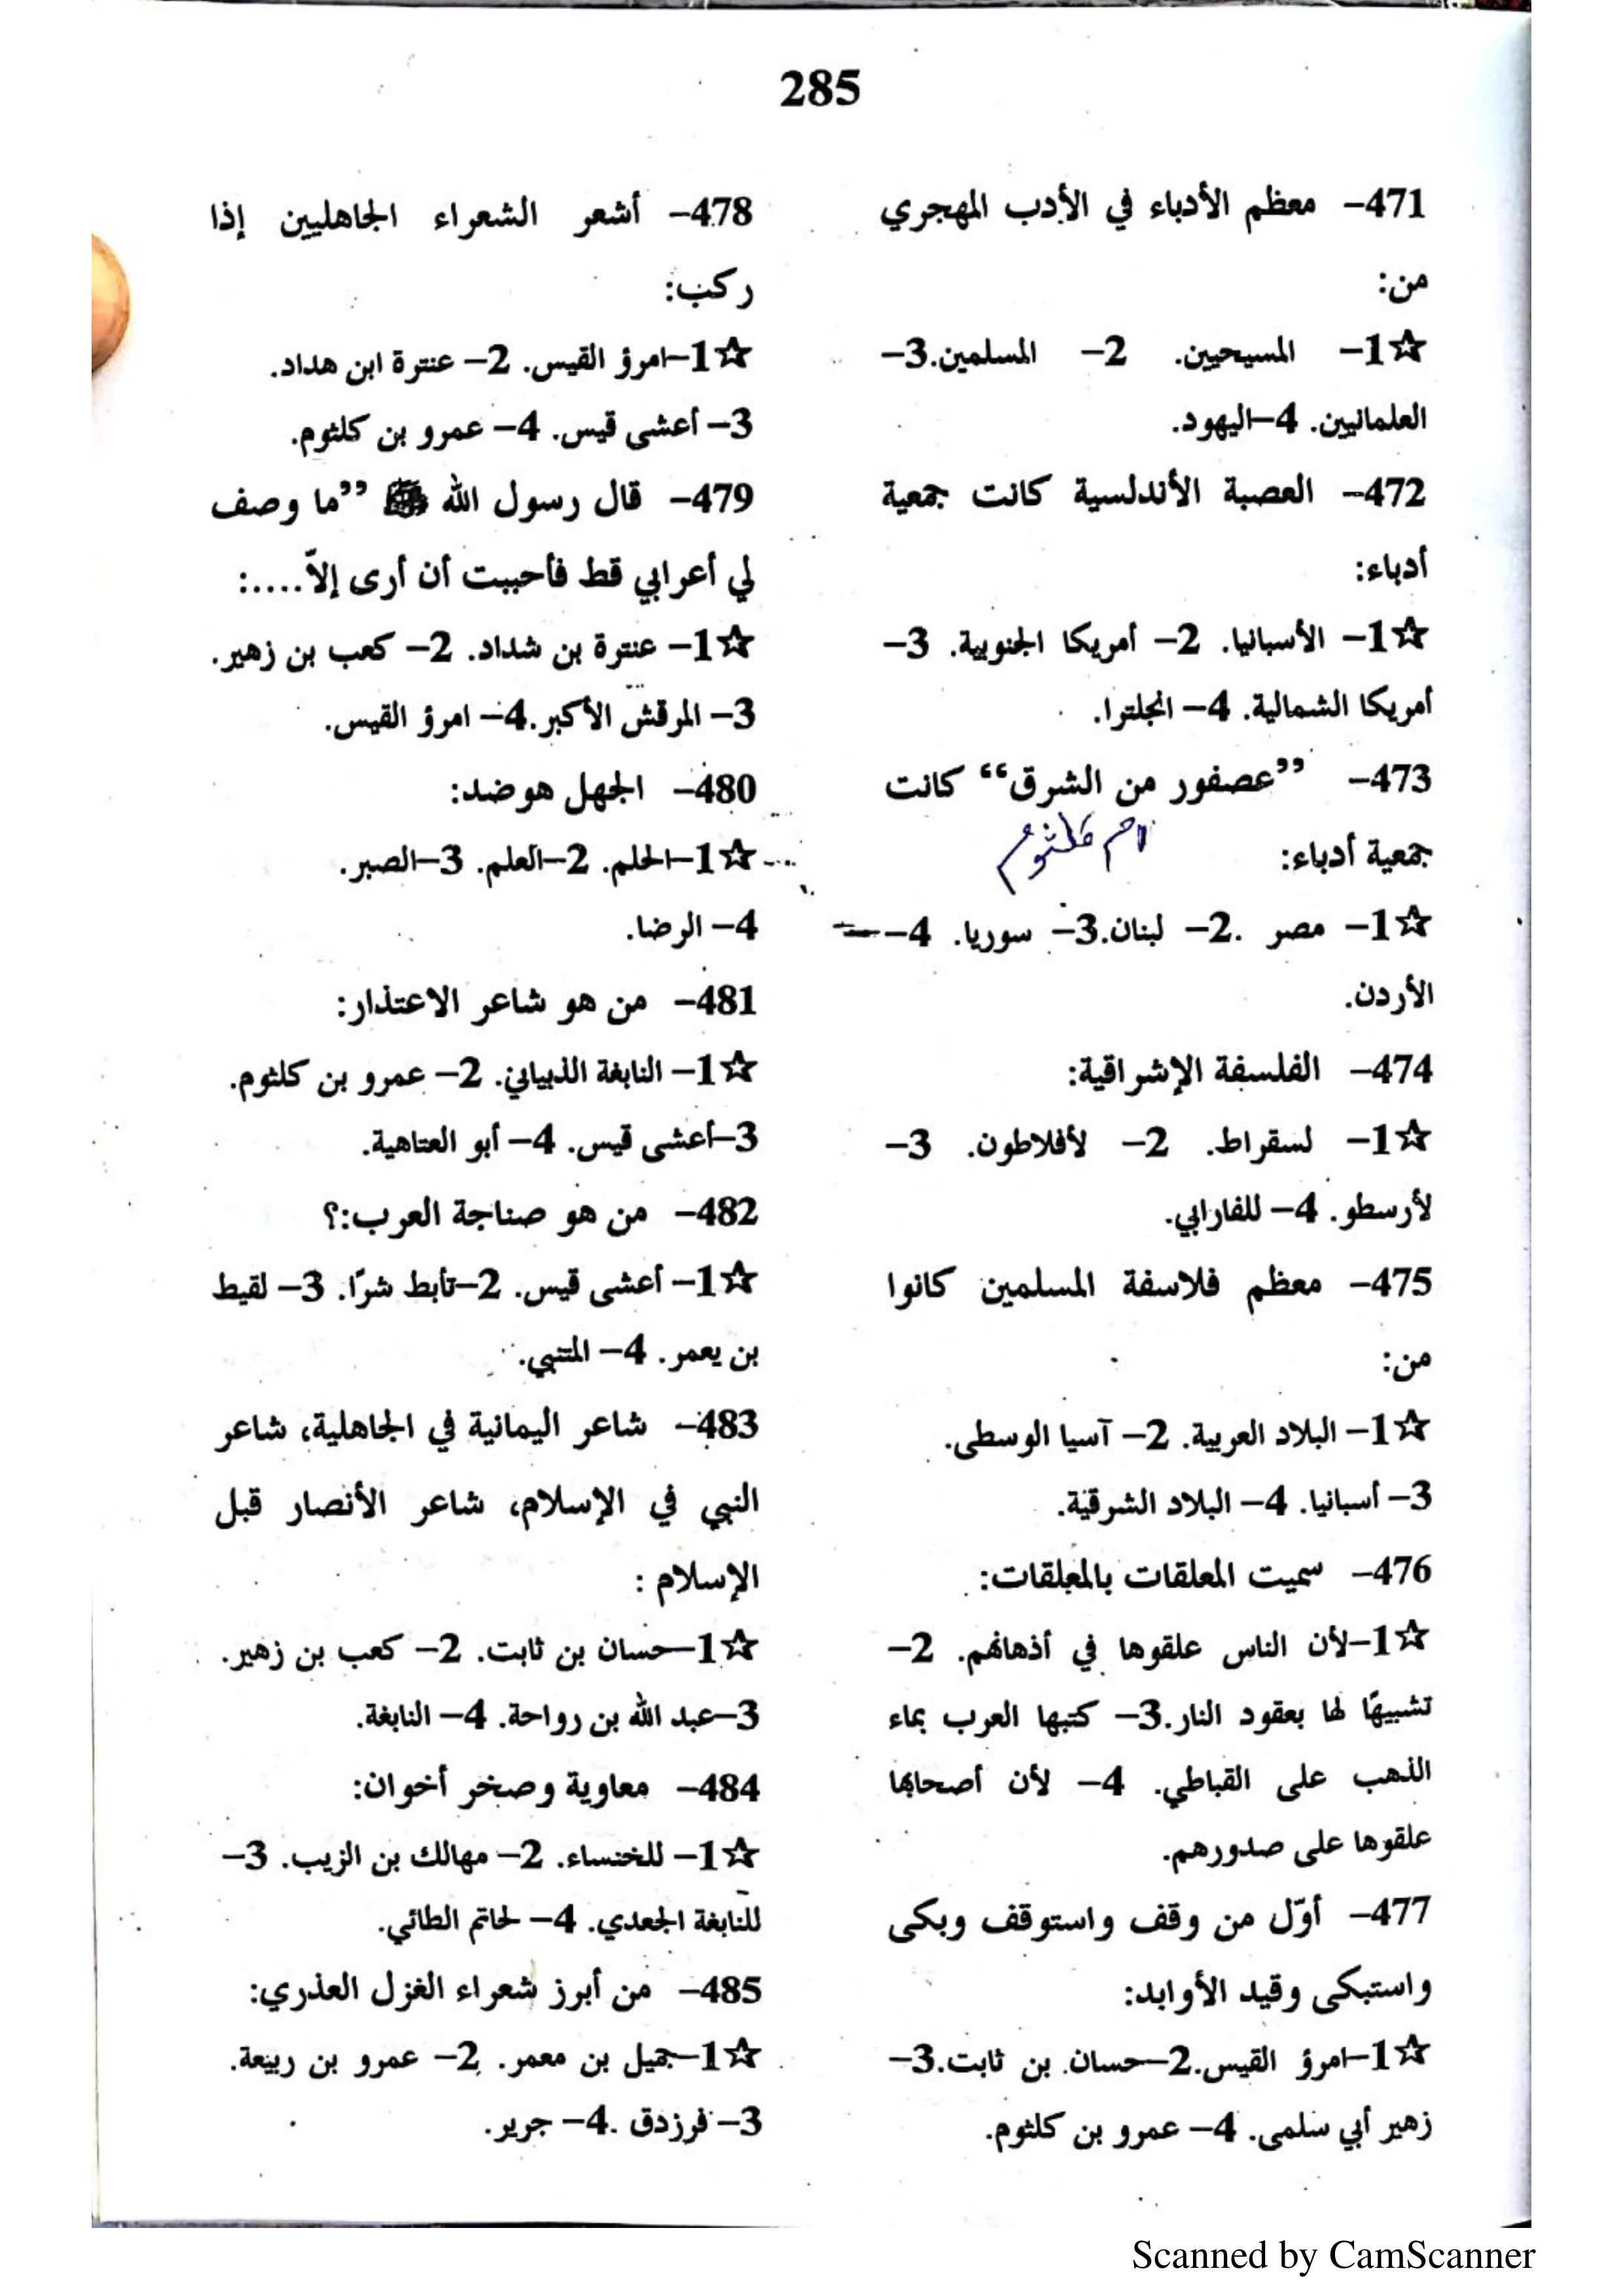 285
471– معظم الأدباء في الأدب المهجري
من:
☆1– المسيحيين. 2– المسلمين.3–
العلمانيين. 4–اليهود.
472– العصبة الأندلسية كانت جمعية
أدباء:
☆1– الأسبانيا. 2– أمريكا الجنوبية. 3–
أمريكا الشمالية. 4– انجلترا.
473– ”عصفور من الشرق“ كانت
جمعية أدباء: ام كلثوم
☆1– مصر .2– لبنان.3– سوريا. 4–
الأردن.
474– الفلسفة الإشراقية:
☆1– لسقراط. 2– لأفلاطون. 3–
لأرسطو. 4– للفارابي.
475– معظم فلاسفة المسلمين كانوا
من:
☆1– البلاد العربية. 2– آسيا الوسطى.
3– أسبانيا. 4– البلاد الشرقية.
476– سميت المعلقات بالمعلقات:
☆1–لأن الناس علقوها في أذهانهم. 2–
تشبيهًا لها بعقود النار.3– كتبها العرب بماء
الذهب على القباطي. 4– لأن أصحابها
علقوها على صدورهم.
477– أوّل من وقف واستوقف وبكى
واستبكى وقيد الأوابد:
☆1–امرؤ القيس.2–حسان بن ثابت.3–
زهير أبي سلمى. 4– عمرو بن كلثوم.
478– أشعر الشعراء الجاهليين إذا
ركب:
☆1–امرؤ القيس. 2– عنترة ابن هداد.
3– أعشى قيس. 4– عمرو بن كلثوم.
479– قال رسول الله ﷺ ”ما وصف
لي أعرابي قط فأحببت أن أرى إلاّ....:
☆1– عنترة بن شداد. 2– كعب بن زهير.
3– المرقش الأكبر.4– امرؤ القيس.
480– الجهل هو ضد:
☆1–الحلم. 2–العلم. 3–الصبر.
4– الرضا.
481– من هو شاعر الاعتذار:
☆1– النابغة الذبياني. 2– عمرو بن كلثوم.
3–أعشى قيس. 4– أبو العتاهية.
482– من هو صناجة العرب:؟
☆1– أعشى قيس. 2–تأبط شرًا. 3– لقيط
بن يعمر. 4– المتنبي.
483– شاعر اليمانية في الجاهلية، شاعر
النبي في الإسلام، شاعر الأنصار قبل
الإسلام :
☆1–حسان بن ثابت. 2– كعب بن زهير.
3–عبد الله بن رواحة. 4– النابغة.
484– معاوية وصخر أخوان:
☆1– للخنساء. 2– مهالك بن الزيب. 3–
للنابغة الجعدي. 4– لحاتم الطائي.
485– من أبرز شعراء الغزل العذري:
☆1–جميل بن معمر. 2– عمرو بن ربيعة.
3– فرزدق .4– جرير.
Scanned by CamScanner